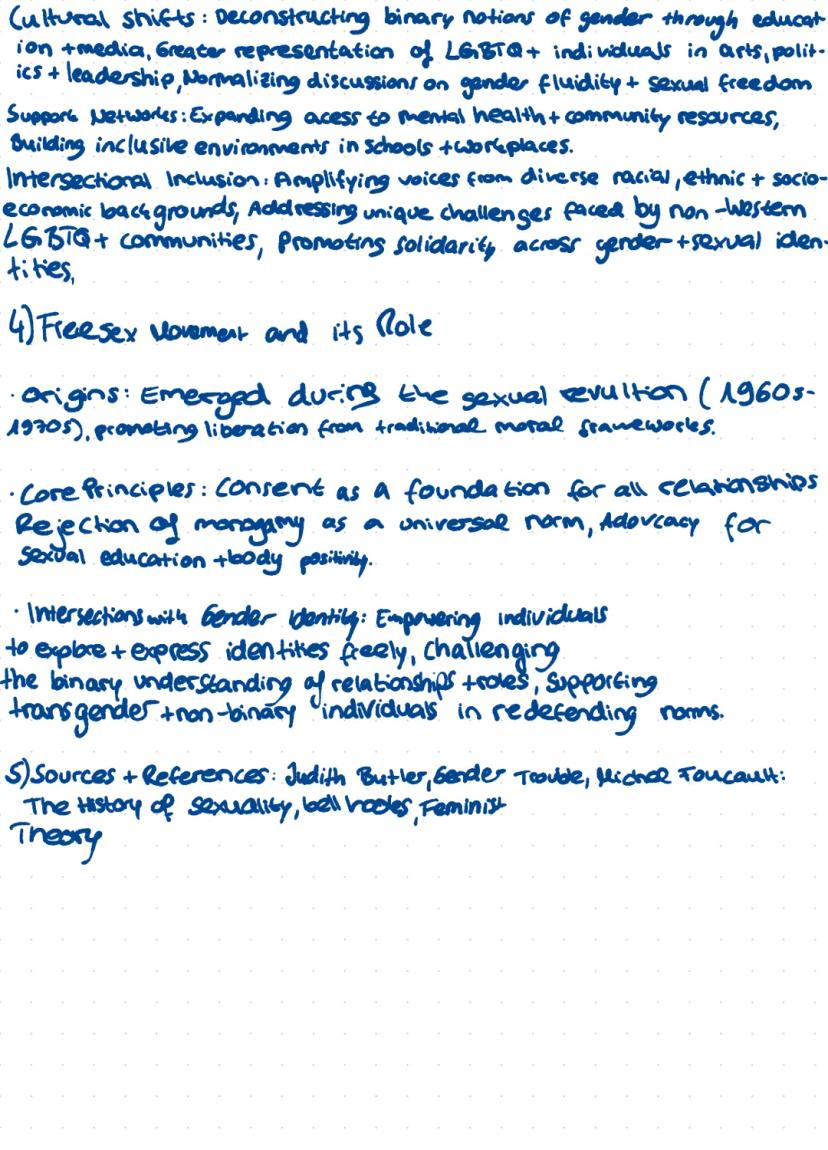 Cultural shifts: Deconstructing binary notions of gender through educat-
ion + media, Greater representation of LGBTQ+ individuals in arts, polit-
ics + leadership, Normalizing discussions on gender fluidity + sexual freedom
Support Networks: Expanding acess to mental health + community resources,
Building inclusive environments in schools + workplaces.
Intersectional Inclusion: Amplifying voices from diverse racial, ethnic + socio-
economic backgrounds, Addressing unique challenges faced by non-Western
LGBTQ+ communities, Promoting solidarity across gender + sexual iden-
tities,
4) Freesex Movement and its Role
· Origins: Emerged during the sexual revultion (1960s-
1970s), promoting liberation from traditional moral frameworks.
· Core Principles: Consent as a foundation for all relationships
Rejection of monogamy as a universal norm, Adovcacy for
sexual education + body positivity.
· Intersections with Gender Identity: Empowering individuals
to explore + express identities freely, challenging
the binary understanding of relationships + roles, supporting
transgender + non-binary individuals in redefending norms.
5) Sources + References: Judith Butler, Gender Trouble, Michel Foucault:
The History of Sexuality, bell hooks, Feminist
Theory